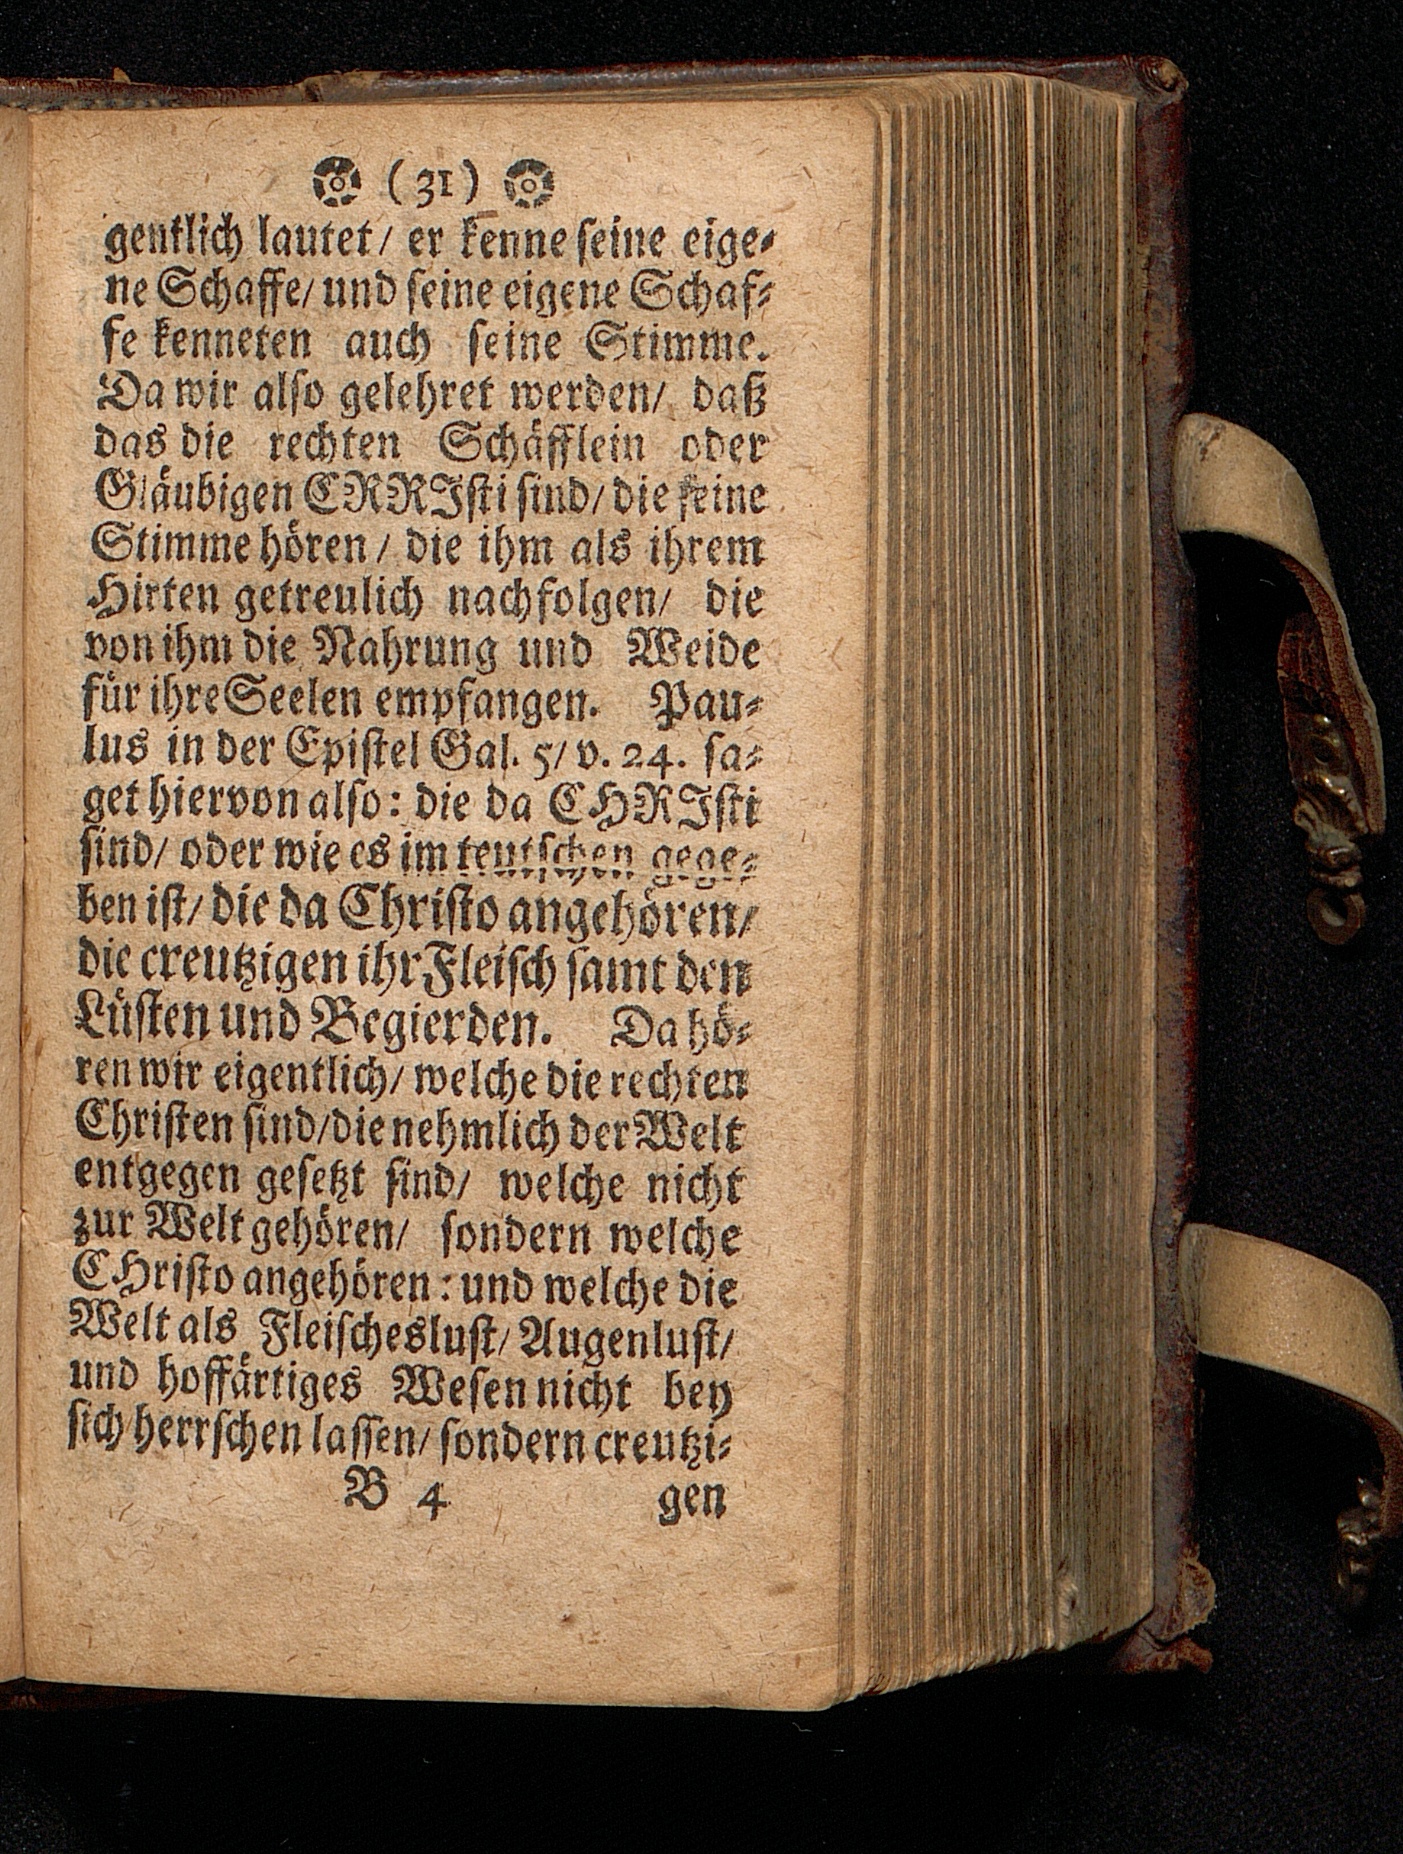 (31)
gentlich lautet/ er kenne ſeine eige⸗
ne Schaffe/ und ſeine eigene Schaf⸗
fe kenneten auch ſeine Stimme.
Da wir alſo gelehret werden/ daß
das die rechten Schäfflein oder
Gläubigen CRRJſti ſind/ die ſeine
Stimme hören/ die ihm als ihrem
Hirten getreulich nachfolgen/ die
von ihm die Nahrung und Weide
für ihre Seelen empfangen. Pau⸗
lus in der Epiſtel Gal. 5/ v. 24. ſa⸗
get hiervon alſo: die da CHRJſti
ſind/ oder wie es im teutſchen gege⸗
ben iſt/ die da Chriſto angehören/
die creutzigen ihr Fleiſch ſamt den
Lüſten und Begierden. Da hö⸗
ren wir eigentlich/ welche die rechten
Chriſten ſind/ die nehmlich der Welt
entgegen geſetzt ſind/ welche nicht
zur Welt gehören/ ſondern welche
CHriſto angehören: und welche die
Welt als Fleiſchesluſt/ Augenluſt/
und hoffärtiges Weſen nicht bey
ſich herrſchen laſſen/ ſondern creutzi⸗
B 4 gen